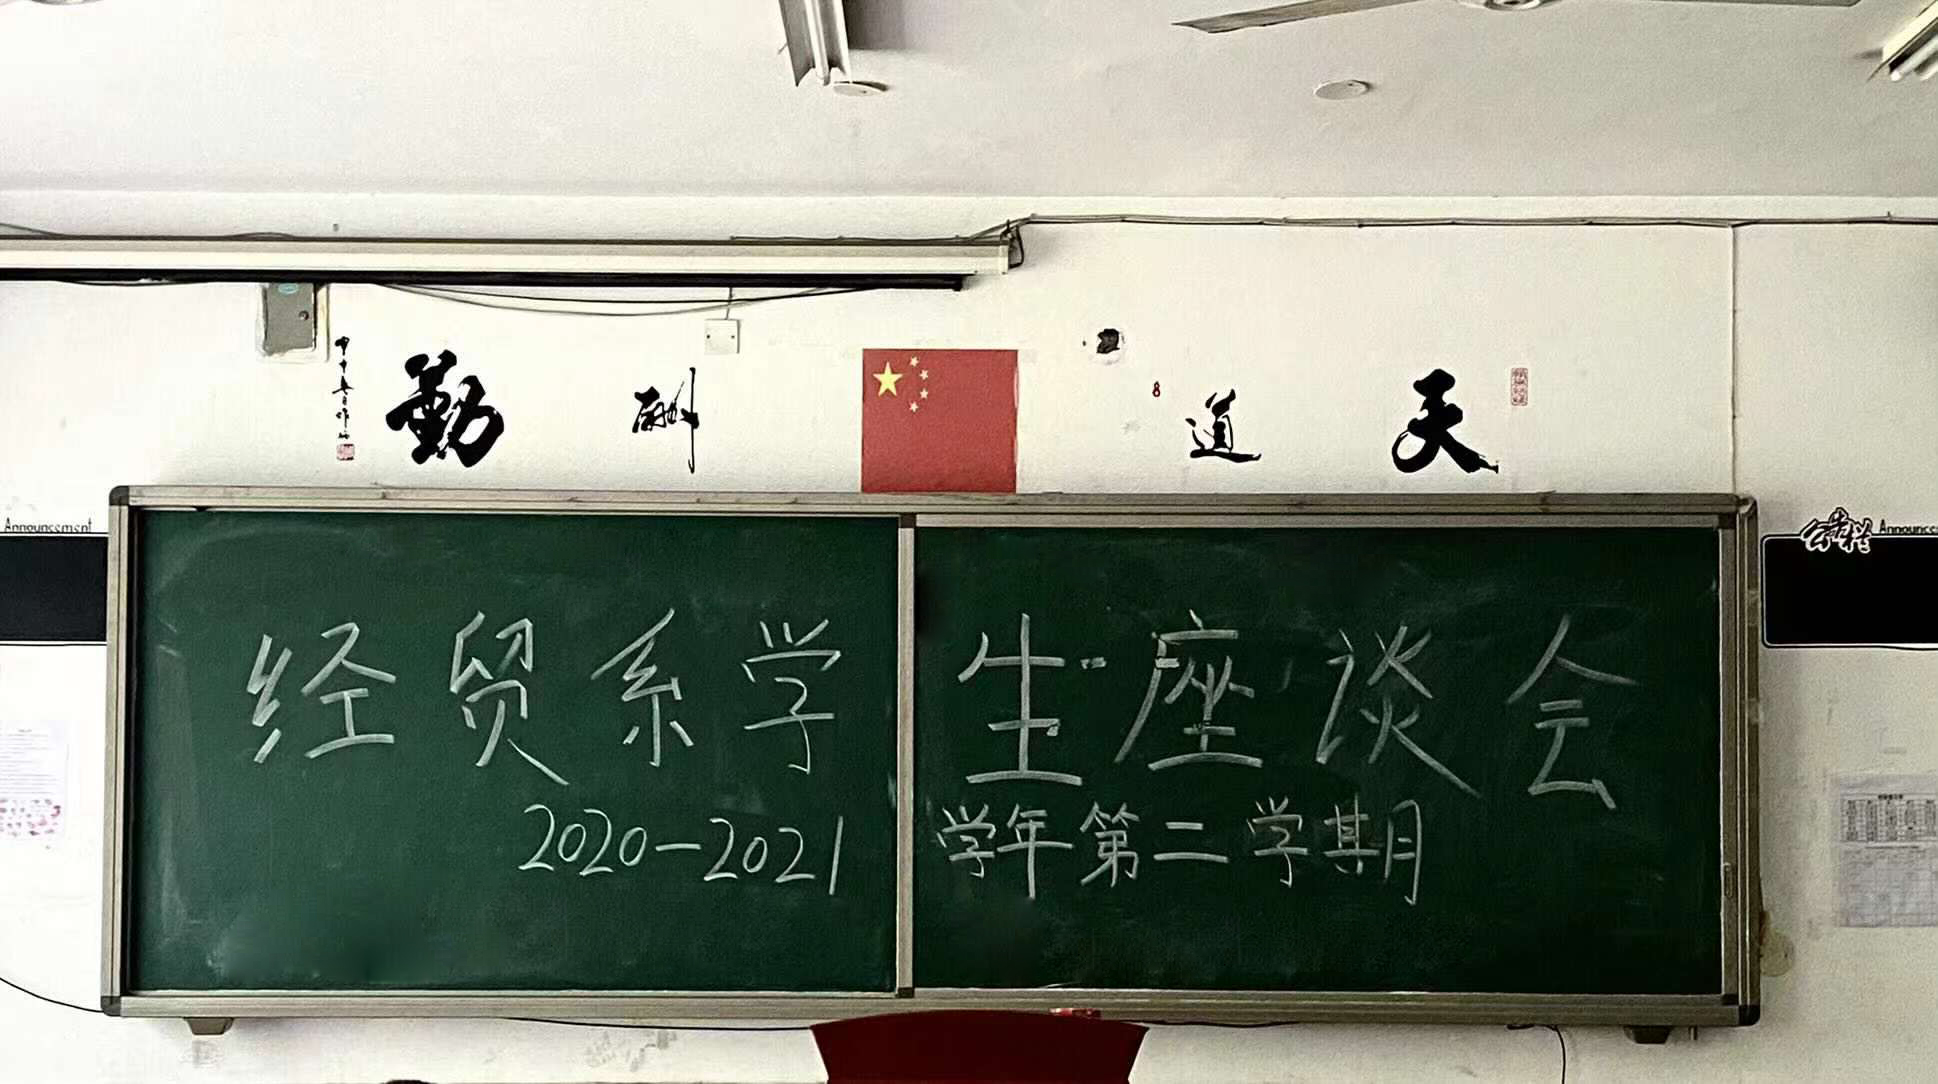 天道酬勤
Announcement
公告栏 Announce
经贸系学生座谈会
2020-2021学年第二学期